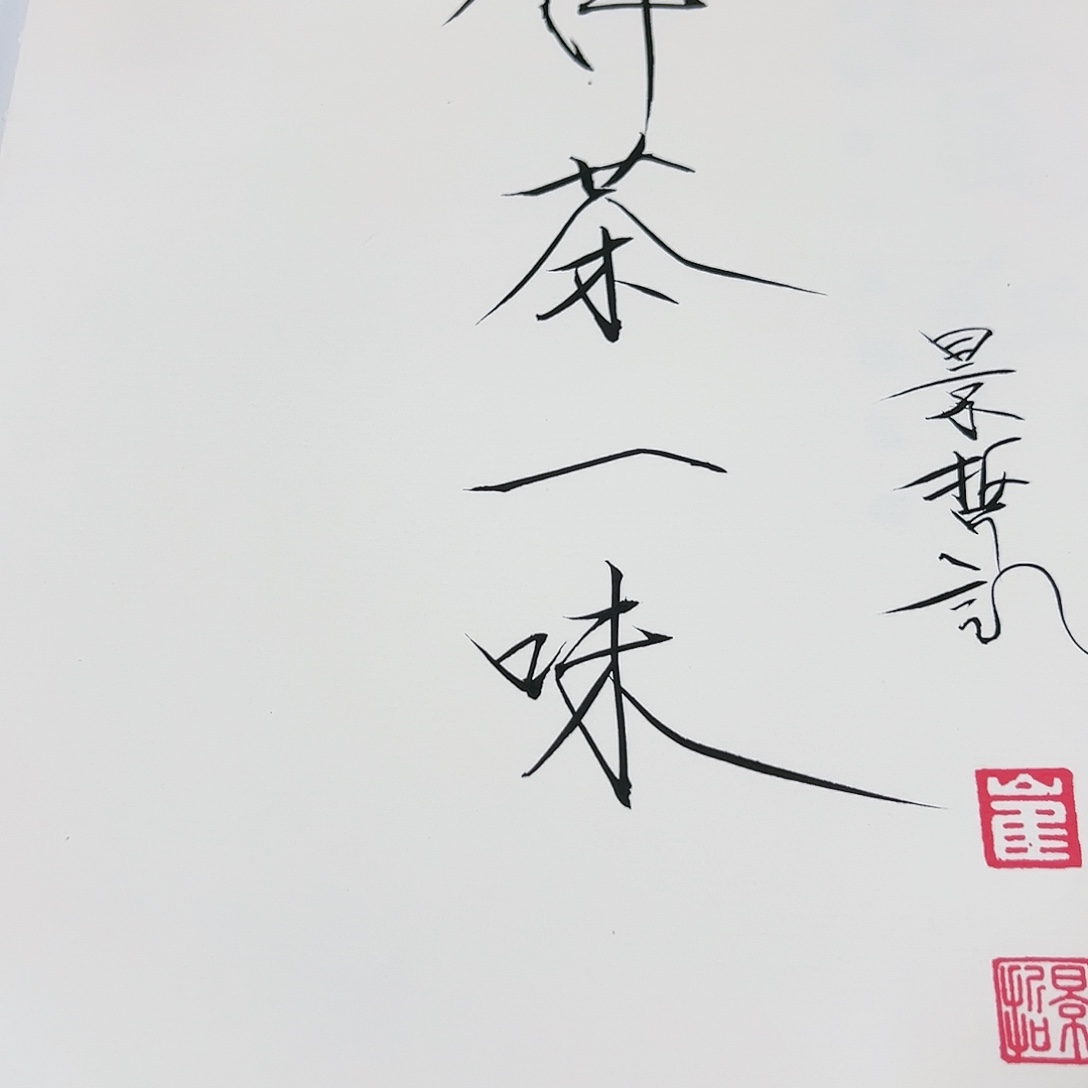 茶一味
景哲記
崔
景哲